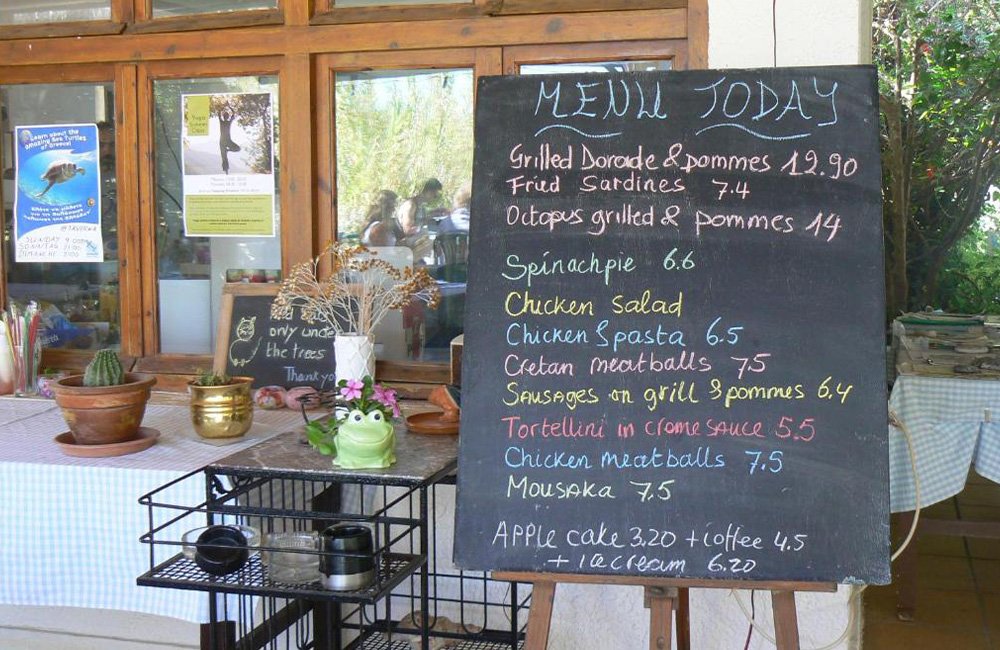 MENU TODAY
Grilled Dorade & pommes 12.90
Fried Sardines 7.4
Octopus grilled & pommes 14
Spinachpie 6.6
Chicken Salad
Chicken & pasta 6.5
Cretan meatballs 7.5
Sausages on grill & pommes 6.4
Tortellini in creme sauce 5.5
Chicken meatballs 7.5
Mousaka 7.5
Apple cake 3.20 + coffee 4.5
+ icecream 6.20
Learn about the
amazing Sea Turtles
of Greece!
@ TAVERNA
SUNDAY
SONNTAG
DIMANCHE
Yoga
only unde
the trees
Thank yo